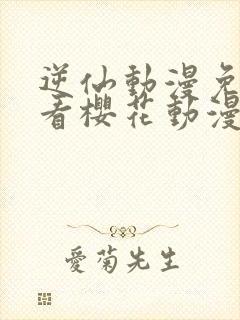 逆仙動漫免
看櫻花動漫
愛菊先生